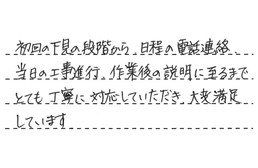 初回の下見の段階から、日程の電話連絡
当日の工事進行、作業後の説明に至るまで
とても丁寧に対応していただき、大変満足
しています